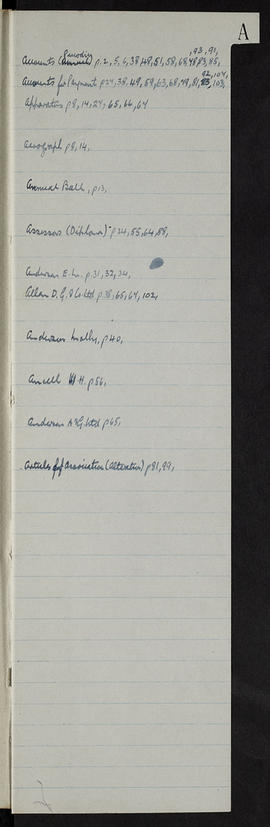 A
Periodic
,93,91,
Accounts (Annual) p.2,5,6,38,48,51,58,68,78,83,85,
92,104,
Accounts for Payment p24,38,49,59,63,68,79,81,83,103,
Apparatus p8,14,27,65,66,67
Aerograph p8,14.
Annual Ball, p13.
Assessors (Diploma) p24,55,64,88,
Anderson E. L. p.31,32,34,
Allan D. G. & Co. Ltd p.38,65,67,102,
Anderson Molly, p40.
Ancell H. p56,
Anderson A & G. Ltd p65,
Articles of Association (Alteration) p81,99,